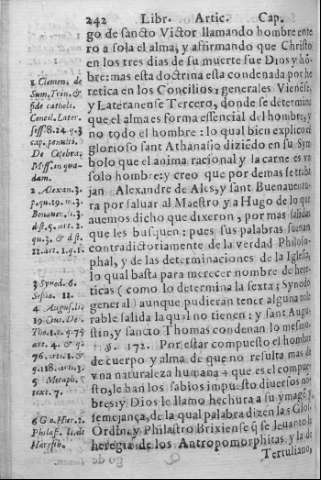 242 Libr. Artic. Cap.
go de sancto Victor llamando hombre ente
ro a sola el alma, y affirmando que Christo
en los tres dias de su muerte fue Dios y hō-
bre: mas esta doctrina esta condenada por he
retica en los Concilios, generales Vienēse,
y Lateranense Tercero, donde se determina
que el alma es forma essencial del hombre, y
no todo el hombre: lo qual bien explico el
glorioso sant Athanasio diziēdo en su Sym
bolo que el anima racional y la carne es vn
solo hombre; y creo que por demas se traba
jan Alexandre de Ales, y sant Buenauentu-
ra por saluar al Maestro y a Hugo de lo que
auemos dicho que dixeron, por mas salidas
que les busquen; pues sus palabras suenan
contradictoriamente de la verdad Philoso-
phal, y de las determinaciones de la Iglesia,
lo qual basta para merecer nombre de here-
ticas (como lo determina la sexta; Synodo
general) aunque pudieran tener alguna
rable salida la qual no tienen; y sant Augu-
stin, y sancto Thomas condenan lo mesmo.
§. 172. Por estar compuesto el hombre
de cuerpo y alma de que no resulta mas de
vna naturaleza humana, que es el compue-
sto, le han los sabios impuesto diuersos no-
bres; y Dios le llamo hechura a su ymagē y
semejança, de la qual palabra dizen la Glo.
Ordin. y Philastro Brixiense se leuanto la
heregia de los Antropomorphitas, y la de
Tertuliano,
1 Clemen. de
Sum. Trin. &
fide catholi.
Concil. Later.
sess. 8.
De Celebra.
Miss. in qua-
dam.
2 Alexan. 3.
Bonauen. in 3.
3 Synod. 6.
4 August. li.
5 Metaph.
text. 7.